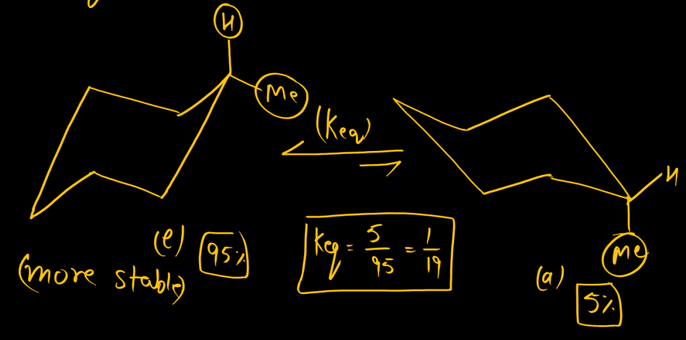 H
Me
(Keq)
H
Me
(e) 95%
(more stable)
Keq = 5/95 = 1/19
(a)
5%